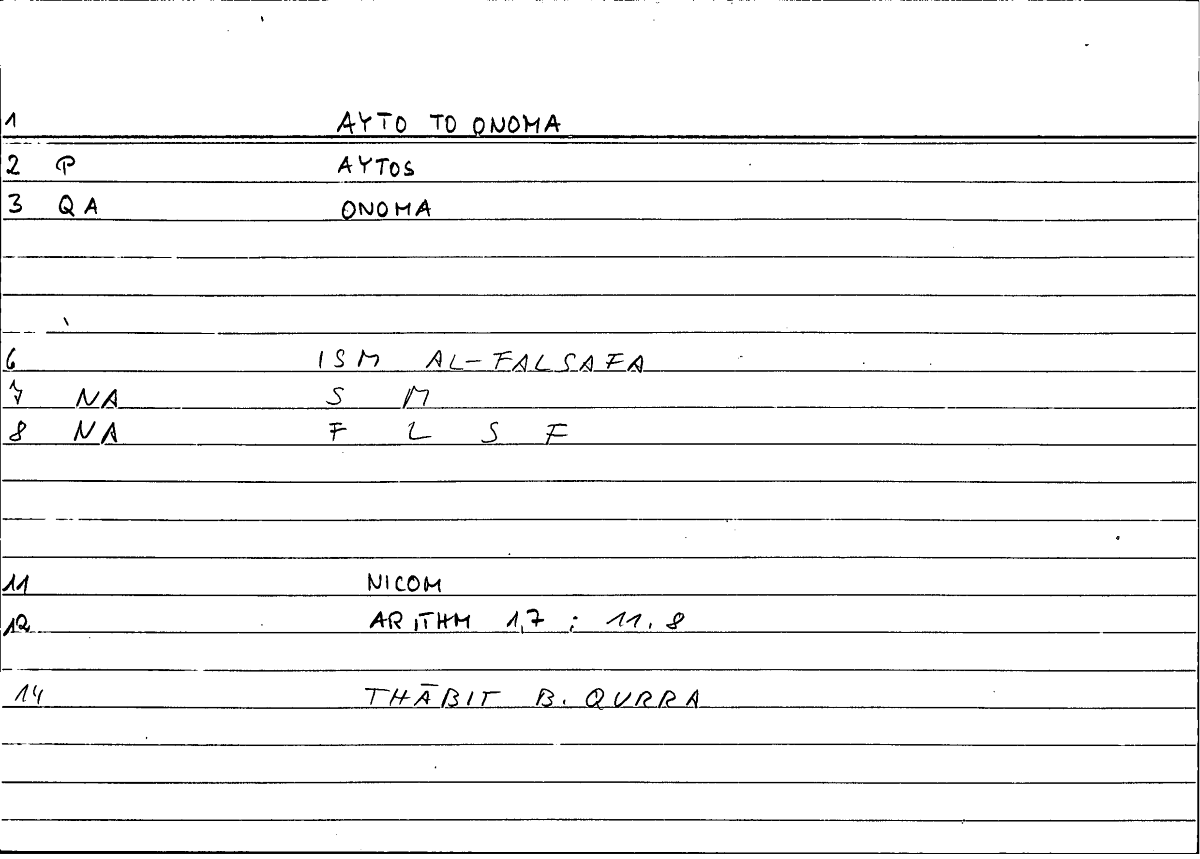 1 AYTO TO ONOMA
2 P AYTOS
3 QA ONOMA
6 ISM AL-FALSAFA
7 NA S M
8 NA F L S F
11 NICOM
12 ARITHM 1,7 : 11.8
14 THĀBIT B. QURRA